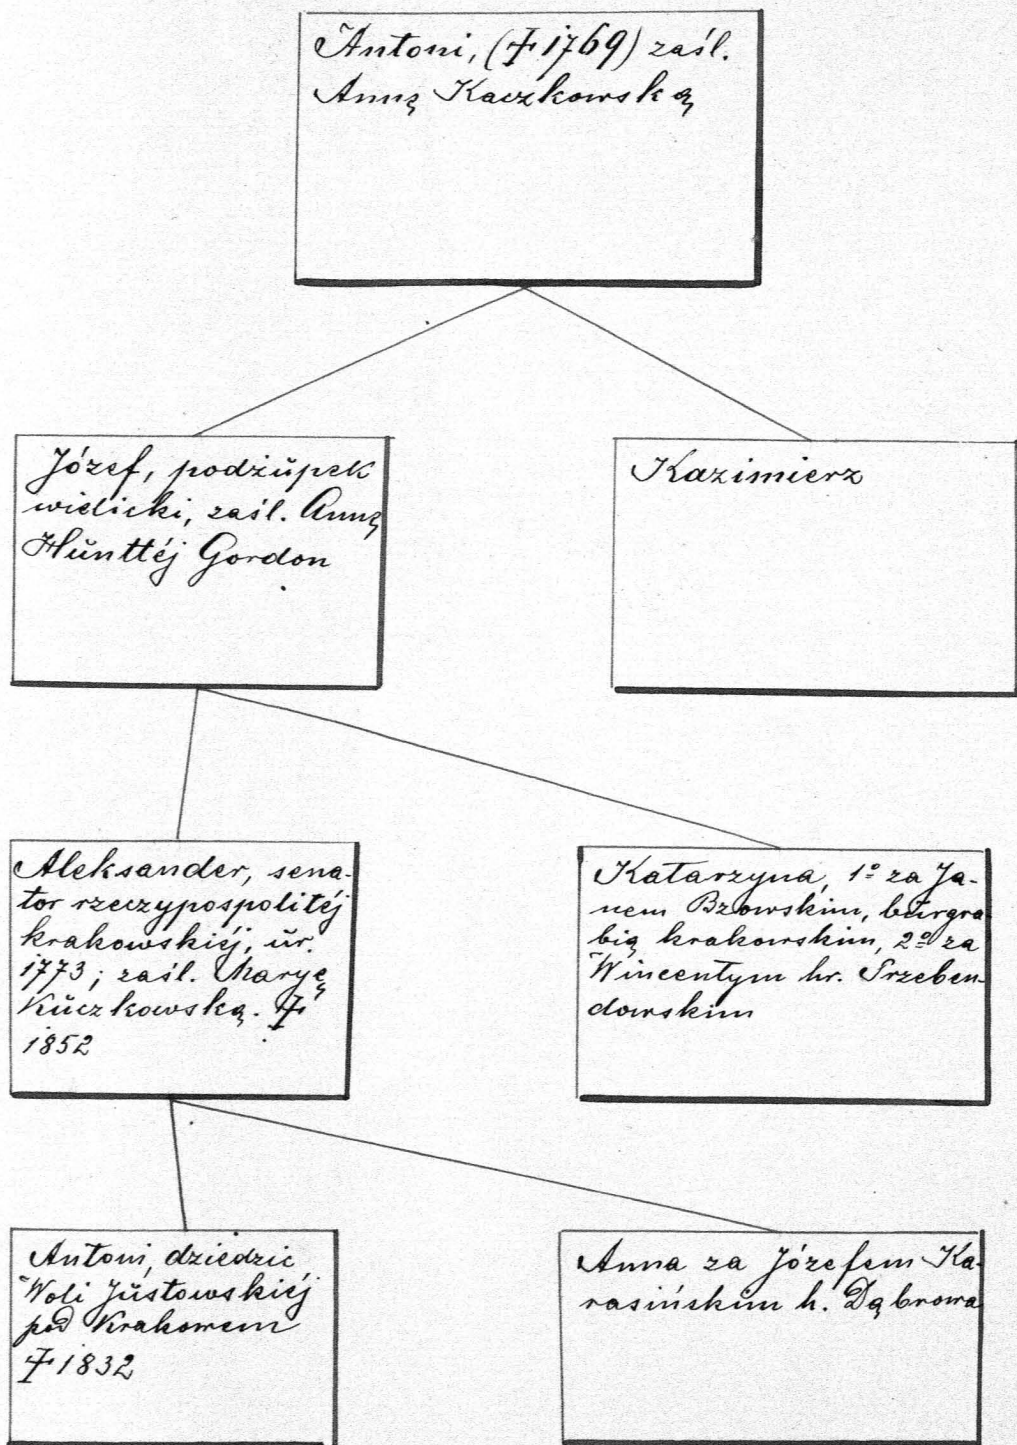 Antoni, (✝ 1769) zaśl.
Annę Kaczkowską
Józef, podżupek
wielicki, zaśl. Annę
Hunttéj Gordon
Kazimierz
Aleksander, sena-
tor rzeczypospolitéj
krakowskiéj, ur.
1773; zaśl. Maryę
Kuczkowską. ✝
1852
Katarzyna, 1º za Ja-
nem Bzowskim, burgra
bią krakowskim, 2º za
Wincentym hr. Przeben-
dowskim
Antoni, dziedzic
Woli Justowskiéj
pod Krakowem
✝ 1832
Anna za Józefem Ka-
rasińskim h. Dąbrowa